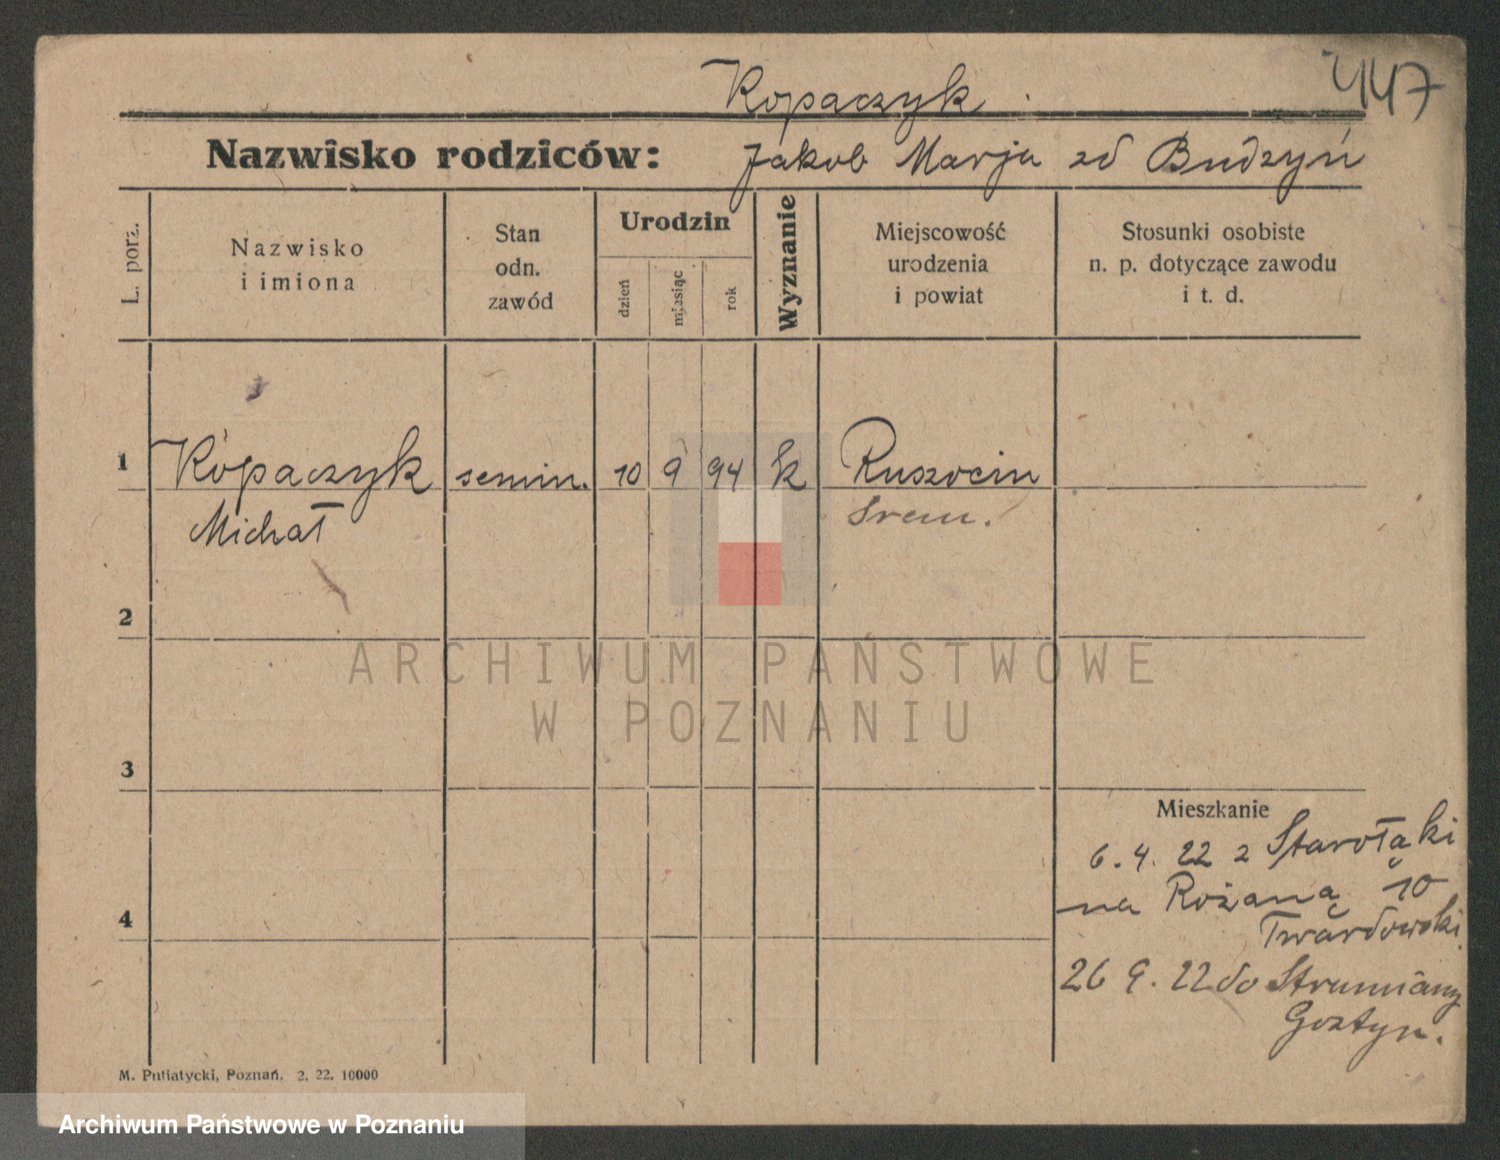 447
Kopaczyk
Nazwisko rodziców: Jakob Marja zd Budzyń
L. porz.
Nazwisko
i imiona
Stan
odn.
zawód
Urodzin
dzień
miesiąc
rok
Wyznanie
Miejscowość
urodzenia
i powiat
Stosunki osobiste
n. p. dotyczące zawodu
i t. d.
1 Kopaczyk semin. 10 9 94 k Ruszocin
Michał Srem.
2
ARCHIWUM PAŃSTWOWE
W POZNANIU
3
Mieszkanie
6. 4. 22 z Starołąki
na Różaną 10
4
Twardowski
26 9. 22 do Strumiany
Gostyn.
M. Putiatycki, Poznań. 2. 22. 10000
Archiwum Państwowe w Poznaniu